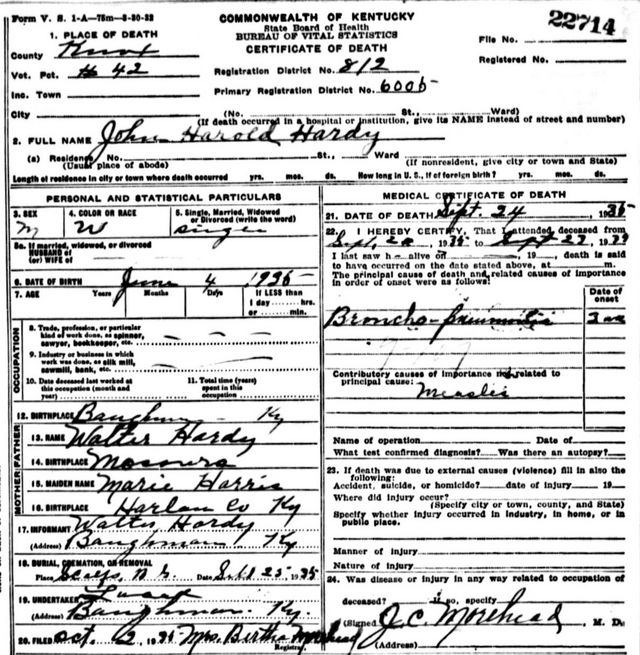 Form V. S. 1-A—75m—8-30-32
COMMONWEALTH OF KENTUCKY
State Board of Health
BUREAU OF VITAL STATISTICS
CERTIFICATE OF DEATH
22714
File No.
Registered No.
1. PLACE OF DEATH
County Knox
Vot. Pct. # 42
Registration District No. 812
Inc. Town
Primary Registration District No. 6005
City (No. St., Ward)
(If death occurred in a hospital or institution, give its NAME instead of street and number)
2. FULL NAME John Harold Hardy
(a) Residence. No. St., Ward
(Usual place of abode) (If nonresident, give city or town and State)
Length of residence in city or town where death occurred yrs. mos. ds. How long in U. S., if of foreign birth? yrs. mos. ds.
PERSONAL AND STATISTICAL PARTICULARS
3. SEX M
4. COLOR OR RACE W
5. Single, Married, Widowed or Divorced (write the word)
5a. If married, widowed, or divorced
HUSBAND of
(or) WIFE of
6. DATE OF BIRTH June 4 1935
7. AGE Years Months Days If LESS than
1 day hrs.
or min.
OCCUPATION
8. Trade, profession, or particular
kind of work done, as spinner,
sawyer, bookkeeper, etc.
9. Industry or business in which
work was done, as silk mill,
sawmill, bank, etc.
10. Date deceased last worked at
this occupation (month and
year)
11. Total time (years)
spent in this
occupation
12. BIRTHPLACE Baughman Ky
FATHER
13. NAME Walter Hardy
14. BIRTHPLACE
MOTHER
15. MAIDEN NAME Marie Harris
16. BIRTHPLACE Harlan Co Ky
17. INFORMANT Walter Hardy
(Address) Baughman Ky
18. BURIAL, CREMATION, OR REMOVAL
Place Date Sept 25 1935
19. UNDERTAKER
(Address) Baughman Ky.
20. FILED Oct. 2, 1935 Mrs. Bertha Morehead
Registrar.
MEDICAL CERTIFICATE OF DEATH
21. DATE OF DEATH Sept. 24, 1935
22. I HEREBY CERTIFY, That I attended deceased from
Sept, 1935 to Sept 19
I last saw h alive on , 19 , death is said
to have occurred on the date stated above, at m.
The principal cause of death and related causes of importance
in order of onset were as follows:
Date of
onset
Broncho-pneumonia
Contributory causes of importance not related to
principal cause:
Measles
Name of operation Date of
What test confirmed diagnosis? Was there an autopsy?
23. If death was due to external causes (violence) fill in also the
following:
Accident, suicide, or homicide? date of injury 19
Where did injury occur?
(Specify city or town, county, and State)
Specify whether injury occurred in industry, in home, or in
public place.
Manner of injury
Nature of injury
24. Was disease or injury in any way related to occupation of
deceased? If so, specify
(Signed) J. C. Morehead M. D.
(Address)